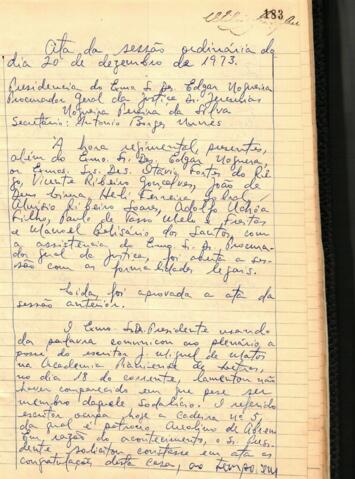 183
Ata da sessão ordinária do
dia 20 de dezembro de 1973.
Presidencia do Exmo. Sr. Des. Edgar Nogueira
Procurador Geral da Justiça Dr. Jeremias
Nogueira Pereira da Silva
Secretário: Antonio Borges Nunes
A hora regimental, presentes,
além do Exmo. Sr. Des. Edgar Nogueira,
os Exmos. Srs. Des. Otavio Fortes do Rê-
go, Vicente Ribeiro Gonçalves, João de
Deus Lima, Heli Ferreira Sobral,
Aluisio Ribeiro Soares, Adolfo Uchôa
Filho, Paulo de Tasso Melo e Freitas
e Manoel Belisário dos Santos, com
a assistencia do Exmo. Sr. Dr. Procura-
dor geral da Justiça, foi aberta a ses-
são com as formalidades legais.
Lida, foi aprovada a ata da
sessão anterior.
O Exmo. Sr. Des. Presidente usando
da palavra comunicou ao plenário a
posse do escritor J. Miguel de Matos
na Academia Piauiense de Letras,
no dia 18 do corrente, lamentou não
haver comparecido em que pese ser
membro daquele Sodalicio. O referido
escritor ocupa hoje a Cadeira nº 5,
da qual é patrono, Areolino de Abreu
Em razão do acontecimento, o Sr. Presi-
dente solicitou constasse em ata as
congratulações desta casa, ao tempo em